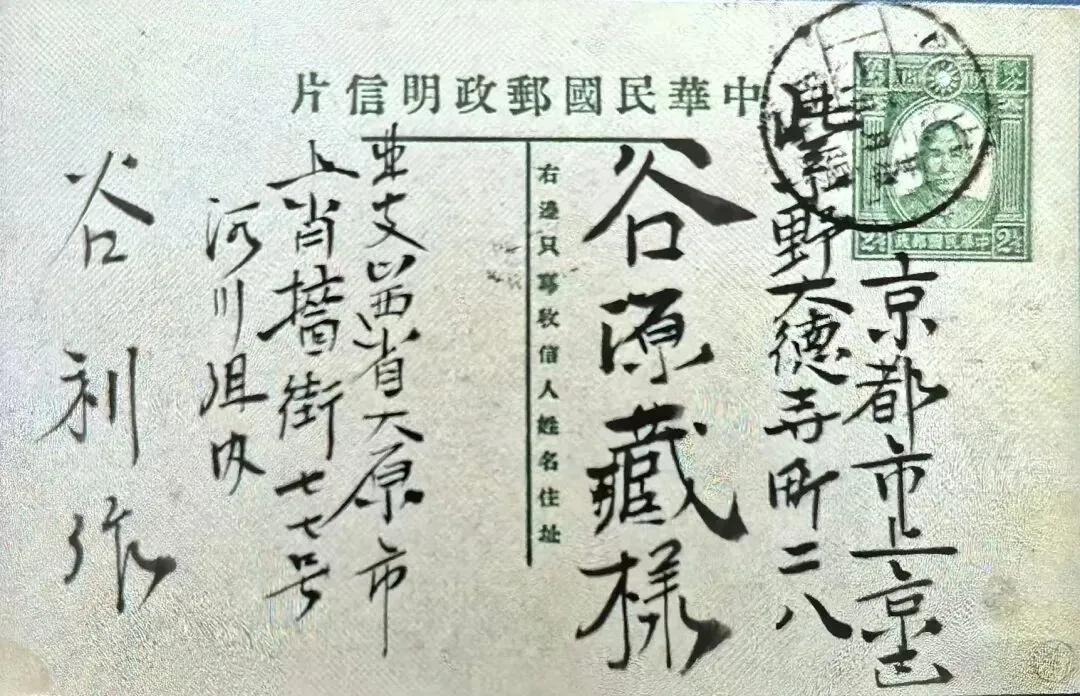 中華民國郵政明信片
京都市上京區
紫野大德寺町二八
谷源藏様
右邊只寫收信人姓名住址
北支山西省太原市
上肖墻街七七号
河川組内
谷利作
中華民國郵政
2½